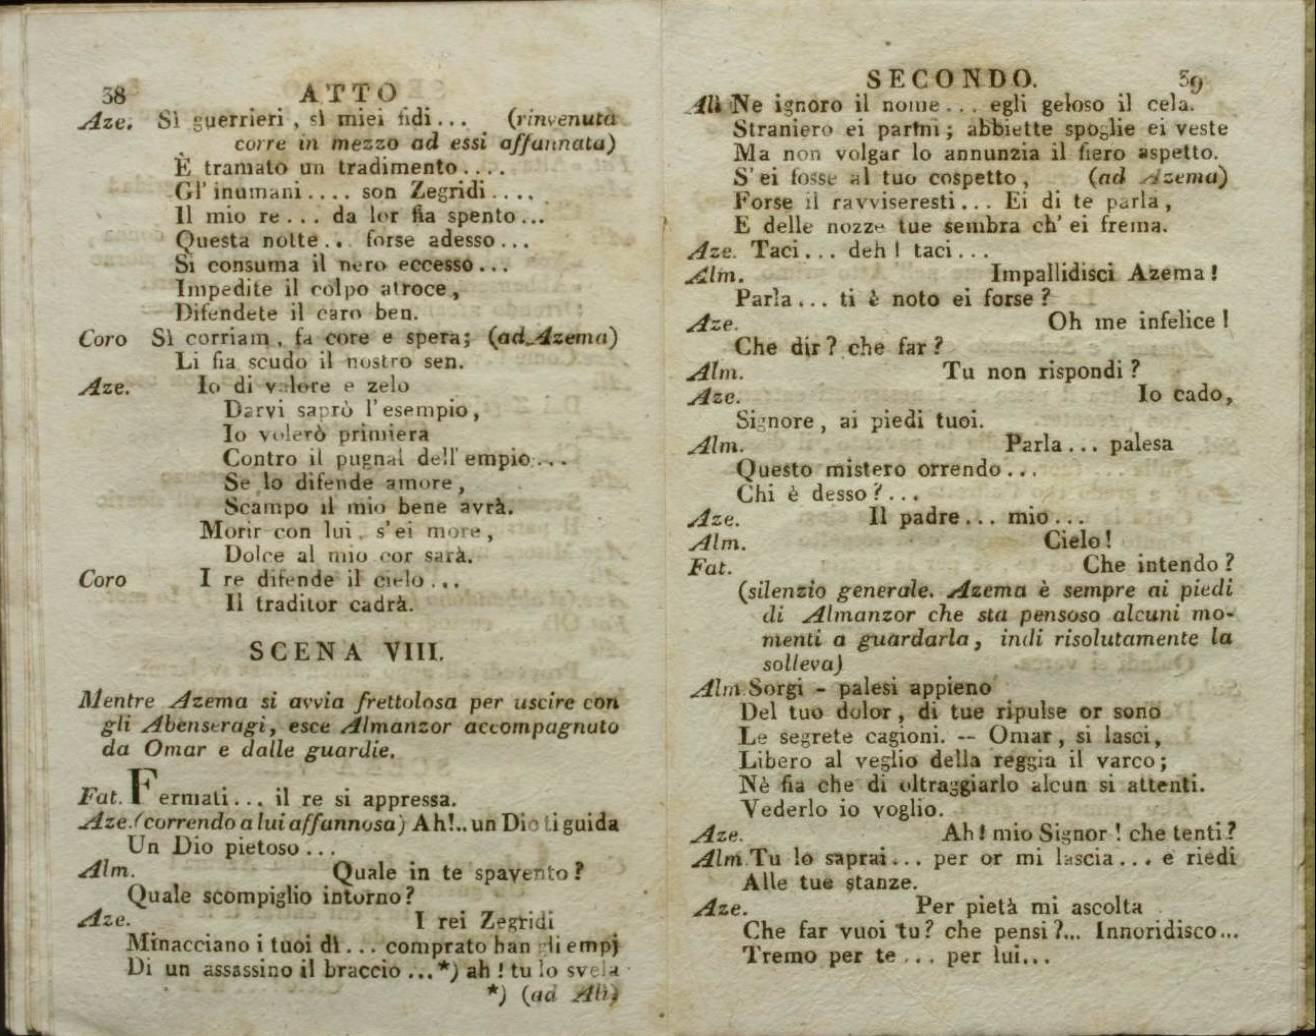 38 ATTO
Aze. Sì guerrieri, sì miei fidi... (rinvenuta
corre in mezzo ad essi affannata)
È tramato un tradimento....
Gl' inumani.... son Zegridi....
Il mio re... da lor fia spento...
Questa notte... forse adesso...
Si consuma il nero eccesso...
Impedite il colpo atroce,
Difendete il caro ben.
Coro Sì corriam, fa core e spera; (ad Azema)
Li fia scudo il nostro sen.
Aze. Io di valore e zelo
Darvi saprò l'esempio,
Io volerò primiera
Contro il pugnal dell' empio...
Se lo difende amore,
Scampo il mio bene avrà.
Morir con lui, s'ei more,
Dolce al mio cor sarà.
Coro I re difende il cielo...
Il traditor cadrà.
SCENA VIII.
Mentre Azema si avvia frettolosa per uscire con
gli Abenseragi, esce Almanzor accompagnato
da Omar e dalle guardie.
Fat. Fermati... il re si appressa.
Aze. (correndo a lui affannosa) Ah!.. un Dio ti guida
Un Dio pietoso...
Alm. Quale in te spavento?
Quale scompiglio intorno?
Aze. I rei Zegridi
Minacciano i tuoi dì... comprato han gli empj
Di un assassino il braccio...*) ah! tu lo svela
*) (ad Alì)
SECONDO. 39
Alì Ne ignoro il nome... egli geloso il cela.
Straniero ei parmi; abbiette spoglie ei veste
Ma non volgar lo annunzia il fiero aspetto.
S' ei fosse al tuo cospetto, (ad Azema)
Forse il ravviseresti... Ei di te parla,
E delle nozze tue sembra ch' ei frema.
Aze. Taci... deh! taci...
Alm. Impallidisci Azema!
Parla... ti è noto ei forse?
Aze. Oh me infelice!
Che dir? che far?
Alm. Tu non rispondi?
Aze. Io cado,
Signore, ai piedi tuoi.
Alm. Parla... palesa
Questo mistero orrendo...
Chi è desso?...
Aze. Il padre... mio...
Alm. Cielo!
Fat. Che intendo?
(silenzio generale. Azema è sempre ai piedi
di Almanzor che sta pensoso alcuni mo-
menti a guardarla, indi risolutamente la
solleva)
Alm. Sorgi - palesi appieno
Del tuo dolor, di tue ripulse or sono
Le segrete cagioni. -- Omar, si lasci,
Libero al veglio della reggia il varco;
Nè fia che di oltraggiarlo alcun si attenti.
Vederlo io voglio.
Aze. Ah! mio Signor! che tenti?
Alm. Tu lo saprai... per or mi lascia... e riedi
Alle tue stanze.
Aze. Per pietà mi ascolta
Che far vuoi tu? che pensi?... Innoridisco...
Tremo per te... per lui...